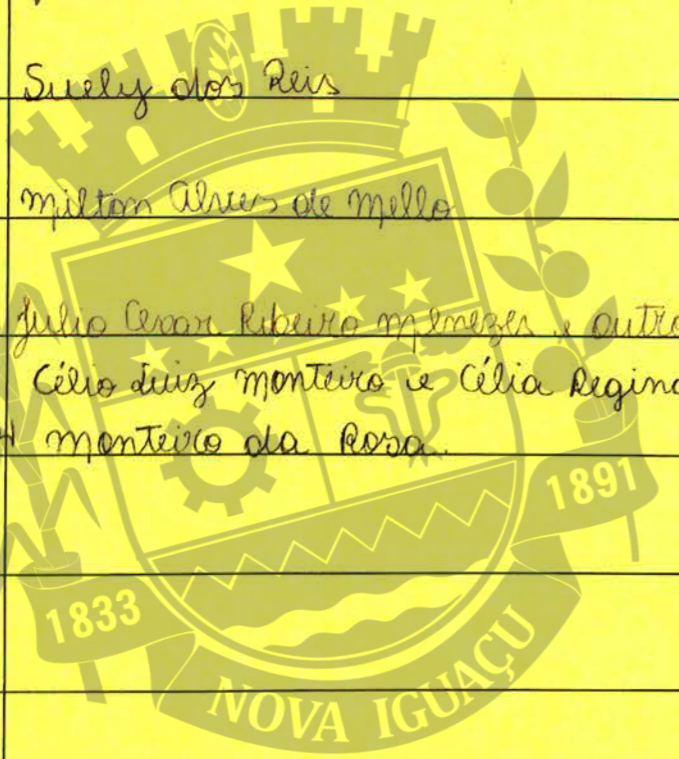 Suely dos Reis
Milton Alves de Mello
Julio Cesar Ribeiro Menezes e outro
Célio Luiz Monteiro e Célia Regina
Monteiro da Rosa.
1891
1833
NOVA IGUAÇU